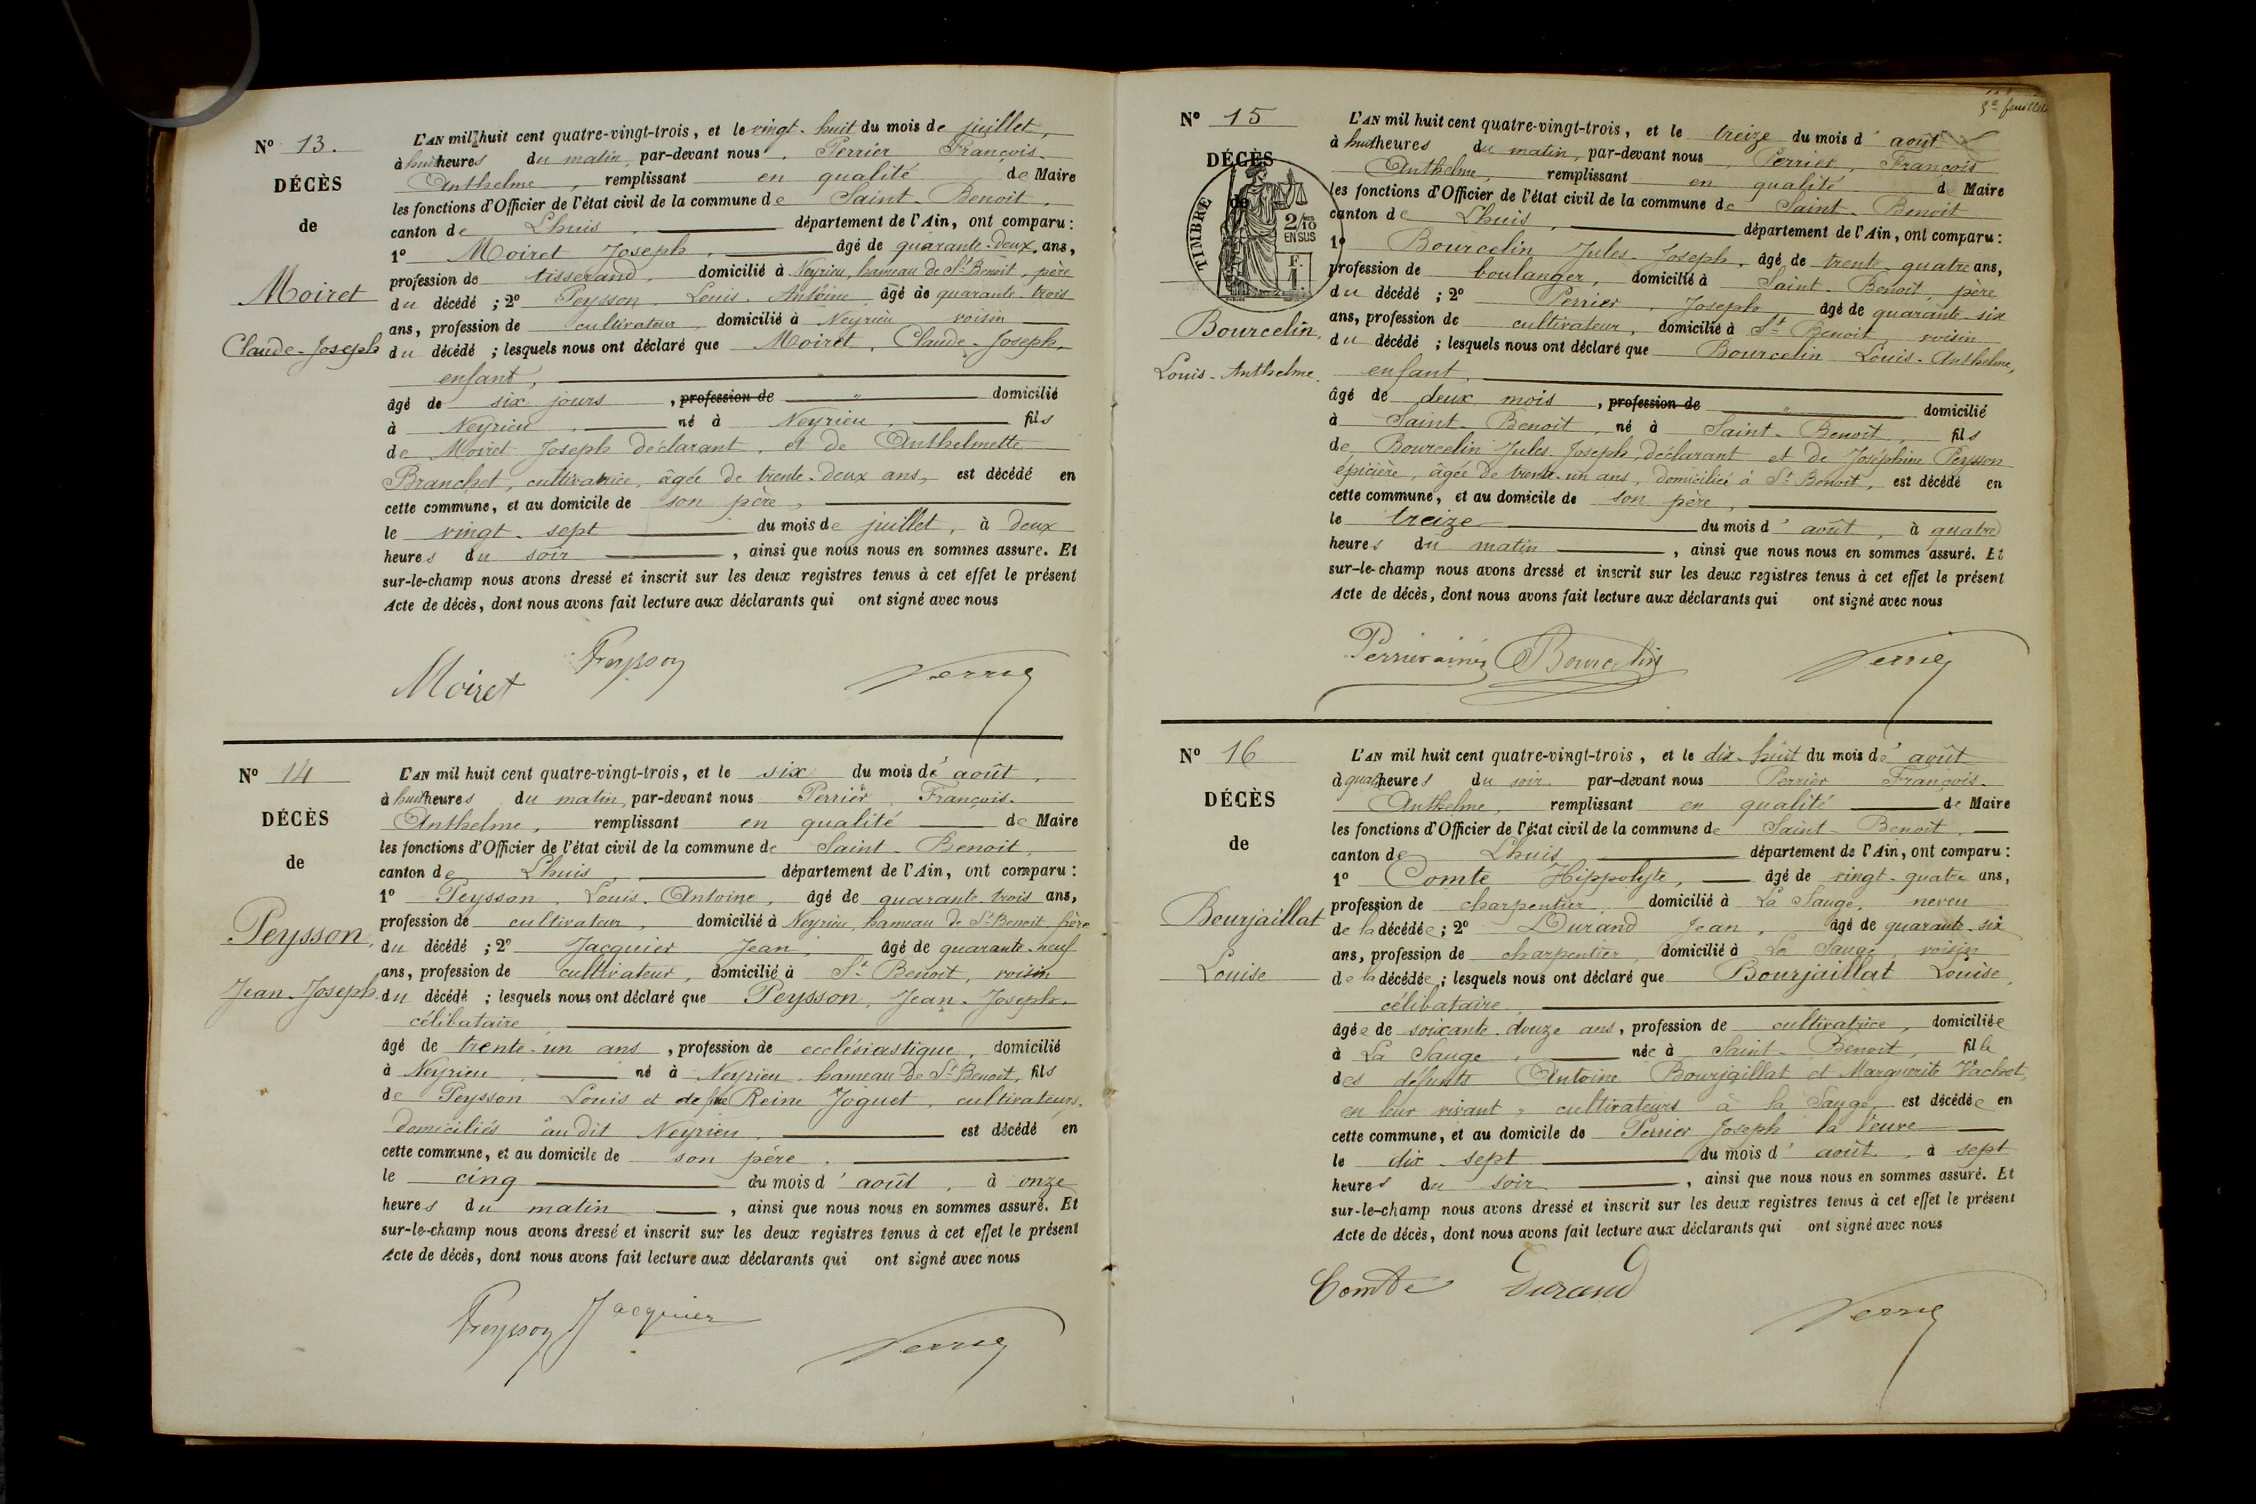 Nº 13.
DÉCÈS
de
Moiret
Claude-Joseph
L'AN mil huit cent quatre-vingt-trois, et le vingt-huit du mois de juillet,
à huit heures du matin, par-devant nous, Perrier François-
Anthelme, remplissant en qualité de Maire
les fonctions d'Officier de l'état civil de la commune de Saint-Benoit,
canton de Lhuis, département de l'Ain, ont comparu :
1º Moiret Joseph, âgé de quarante-deux, ans,
profession de tisserand, domicilié à Neyrieu, hameau de St Benoit, père
du décédé ; 2º Peysson Louis-Antoine, âgé de quarante trois
ans, profession de cultivateur domicilié à Neyrieu voisin
du décédé ; lesquels nous ont déclaré que Moiret, Claude-Joseph,
enfant,
âgé de six jours, profession de " domicilié
à Neyrieu, né à Neyrieu, fils
de Moiret Joseph déclarant, et de Anthelmette
Branchet, cultivatrice, âgée de trente-deux ans, est décédé en
cette commune, et au domicile de son père,
le vingt-sept du mois de juillet, à deux
heures du soir, ainsi que nous nous en sommes assuré. Et
sur-le-champ nous avons dressé et inscrit sur les deux registres tenus à cet effet le présent
Acte de décès, dont nous avons fait lecture aux déclarants qui ont signé avec nous
Moiret Peysson Perrier
Nº 14
DÉCÈS
de
Peysson,
Jean-Joseph
L'AN mil huit cent quatre-vingt-trois, et le six du mois d'août,
à huit heures du matin, par-devant nous Perrier François-
Anthelme, remplissant en qualité de Maire
les fonctions d'Officier de l'état civil de la commune de Saint-Benoit,
canton de Lhuis, département de l'Ain, ont comparu :
1º Peysson, Louis-Antoine, âgé de quarante trois ans,
profession de cultivateur, domicilié à Neyrieu, hameau de St Benoit frère
du décédé ; 2º Jacquier Jean, âgé de quarante-neuf
ans, profession de cultivateur, domicilié à St Benoit, voisin
du décédé ; lesquels nous ont déclaré que Peysson, Jean-Joseph,
célibataire,
âgé de trente-un ans, profession de ecclésiastique, domicilié
à Neyrieu, né à Neyrieu hameau de St Benoit, fils
de Peysson Louis et de feue Reine Joguet, cultivateurs,
domiciliés au dit Neyrieu, est décédé en
cette commune, et au domicile de son père,
le cinq du mois d'août, à onze
heures du matin, ainsi que nous nous en sommes assuré. Et
sur-le-champ nous avons dressé et inscrit sur les deux registres tenus à cet effet le présent
Acte de décès, dont nous avons fait lecture aux déclarants qui ont signé avec nous
Peysson Jacquier Perrier
5e feuillet
Nº 15
DÉCÈS
de
TIMBRE
2/10
EN SUS
F.
1.
Bourcelin,
Louis-Anthelme.
L'AN mil huit cent quatre-vingt-trois, et le treize du mois d'août
à huit heures du matin, par-devant nous Perrier, François
Anthelme, remplissant en qualité de Maire
les fonctions d'Officier de l'état civil de la commune de Saint-Benoit
canton de Lhuis, département de l'Ain, ont comparu :
1º Bourcelin Jules-Joseph, âgé de trente-quatre ans,
profession de boulanger, domicilié à Saint-Benoit, père
du décédé ; 2º Perrier, Joseph âgé de quarante-six
ans, profession de cultivateur, domicilié à St Benoit voisin
du décédé ; lesquels nous ont déclaré que Bourcelin Louis-Anthelme,
enfant,
âgé de deux mois, profession de " domicilié
à Saint-Benoit, né à Saint-Benoit, fils
de Bourcelin Jules Joseph, déclarant et de Joséphine Peysson
épicière, âgée de trente-un ans, domiciliée à St Benoit, est décédé en
cette commune, et au domicile de son père,
le treize du mois d'août, à quatre
heures du matin, ainsi que nous nous en sommes assuré. Et
sur-le-champ nous avons dressé et inscrit sur les deux registres tenus à cet effet le présent
Acte de décès, dont nous avons fait lecture aux déclarants qui ont signé avec nous
Perrier ainé Bourcelin Perrier
Nº 16
DÉCÈS
de
Bourjaillat
Louise
L'AN mil huit cent quatre-vingt-trois, et le dix-huit du mois d'août
à quatre heures du soir par-devant nous Perrier François-
Anthelme, remplissant en qualité de Maire
les fonctions d'Officier de l'état civil de la commune de Saint-Benoit,
canton de Lhuis département de l'Ain, ont comparu :
1º Comte Hippolyte, âgé de vingt-quatre ans,
profession de charpentier, domicilié à La Sauge, neveu
de la décédée ; 2º Durand Jean, âgé de quarante-six
ans, profession de charpentier, domicilié à La Sauge, voisin
de la décédée ; lesquels nous ont déclaré que Bourjaillat Louise,
célibataire,
âgée de soixante-douze ans, profession de cultivatrice, domiciliée
à La Sauge, née à Saint-Benoit, fille
des défunts Antoine Bourjaillat et Marguerite Vachet,
en leur vivant, cultivateurs à la Sauge, est décédée en
cette commune, et au domicile de Perrier Joseph la Veuve
le dix-sept du mois d'août, à sept
heures du soir, ainsi que nous nous en sommes assuré. Et
sur-le-champ nous avons dressé et inscrit sur les deux registres tenus à cet effet le présent
Acte de décès, dont nous avons fait lecture aux déclarants qui ont signé avec nous
Comte Durand Perrier